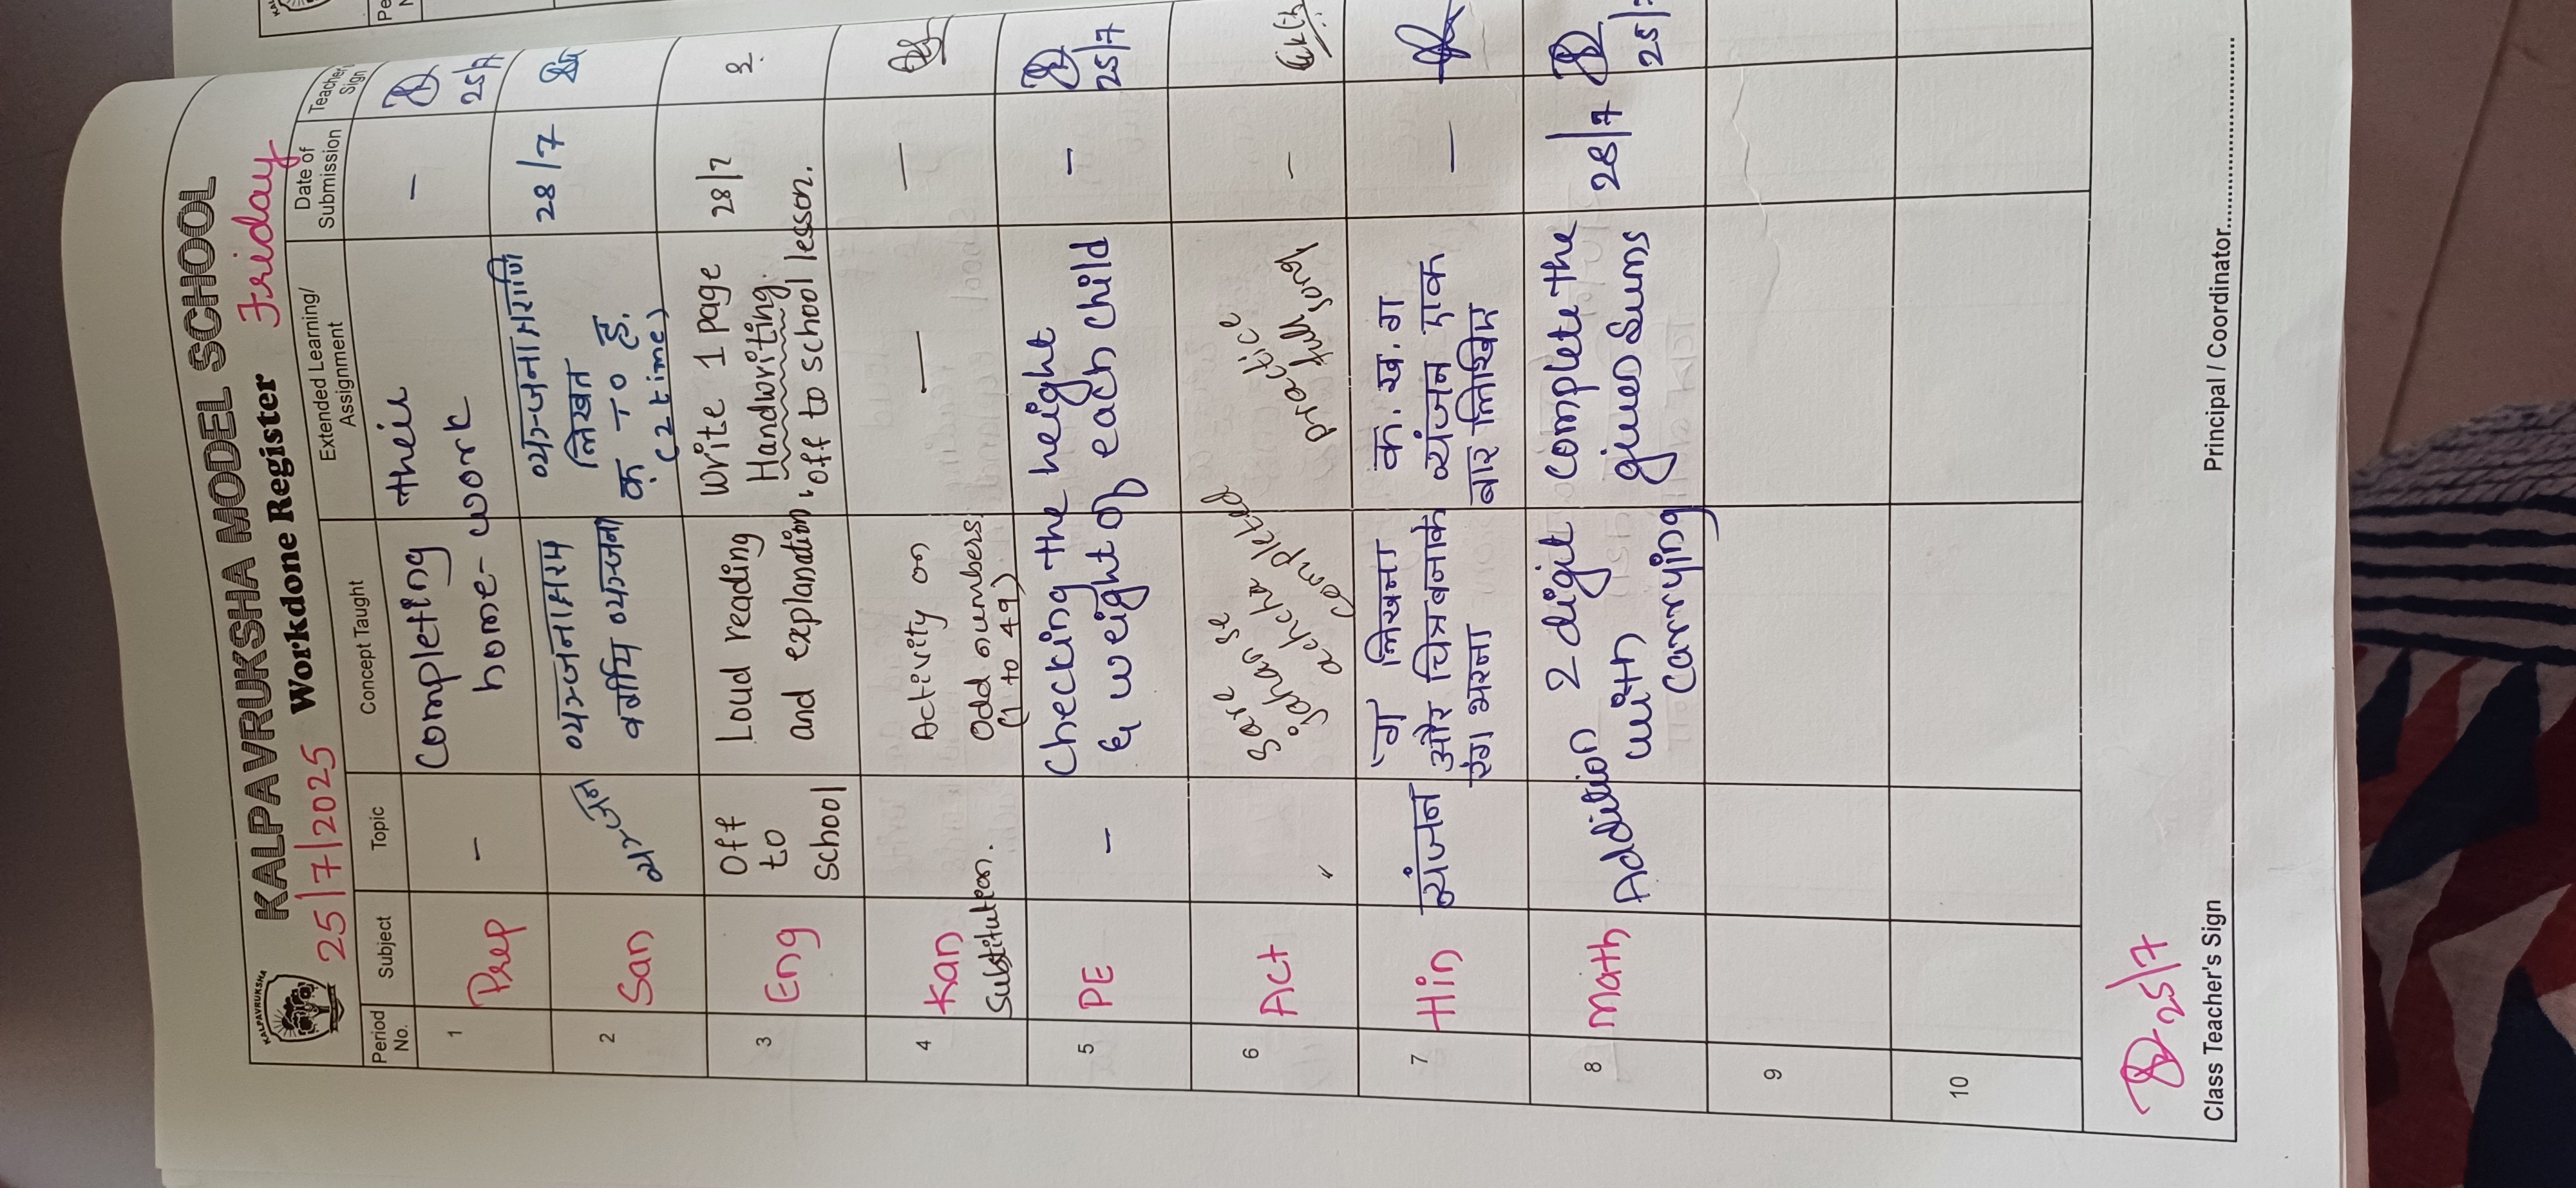 KALPAVRUKSHA
KALPAVRUKSHA MODEL SCHOOL
25/7/2025 Workdone Register Friday
Period No. Subject Topic Concept Taught Extended Learning/ Assignment Date of Submission Teacher Sign
1 Prep - Completing their
home-work - 25/7
2 San व्यञ्जन व्यञ्जनाक्षरम्
वर्गीय व्यञ्जना व्यञ्जनाक्षराणि
लिखत
क् To ह्.
(2 time) 28/7
3 Eng Off
to
School Loud reading
and explanation, off to school lesson.
Write 1 page
Handwriting. 28/7
4 Kan
Substitution. Activity on
Odd numbers.
(1 to 49) — —
5 PE - Checking the height
& weight of each child - 25/7
6 Act Sare
jahan se
achcha
completed practice
full song -
7 Hin व्यंजन 'ग' लिखना
और चित्र बनाके
रंग भरना क. ख. ग
व्यंजन एक
बार लिखिए —
8 Math Addition 2 digit
with
Carrying Complete the
given sums 28/7 25/7
9
10
25/7
Class Teacher's Sign Principal / Coordinator